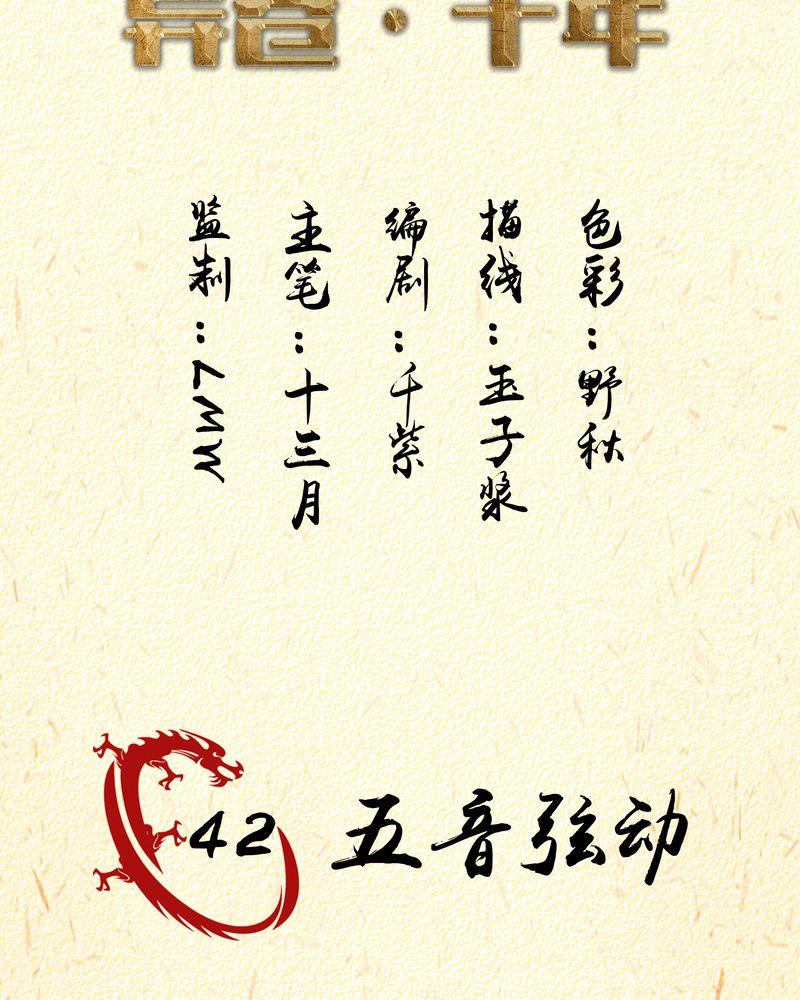 监制：
主笔：十三月
编剧：千紫
描线：玉子浆
色彩：野秋
42 五音弦动